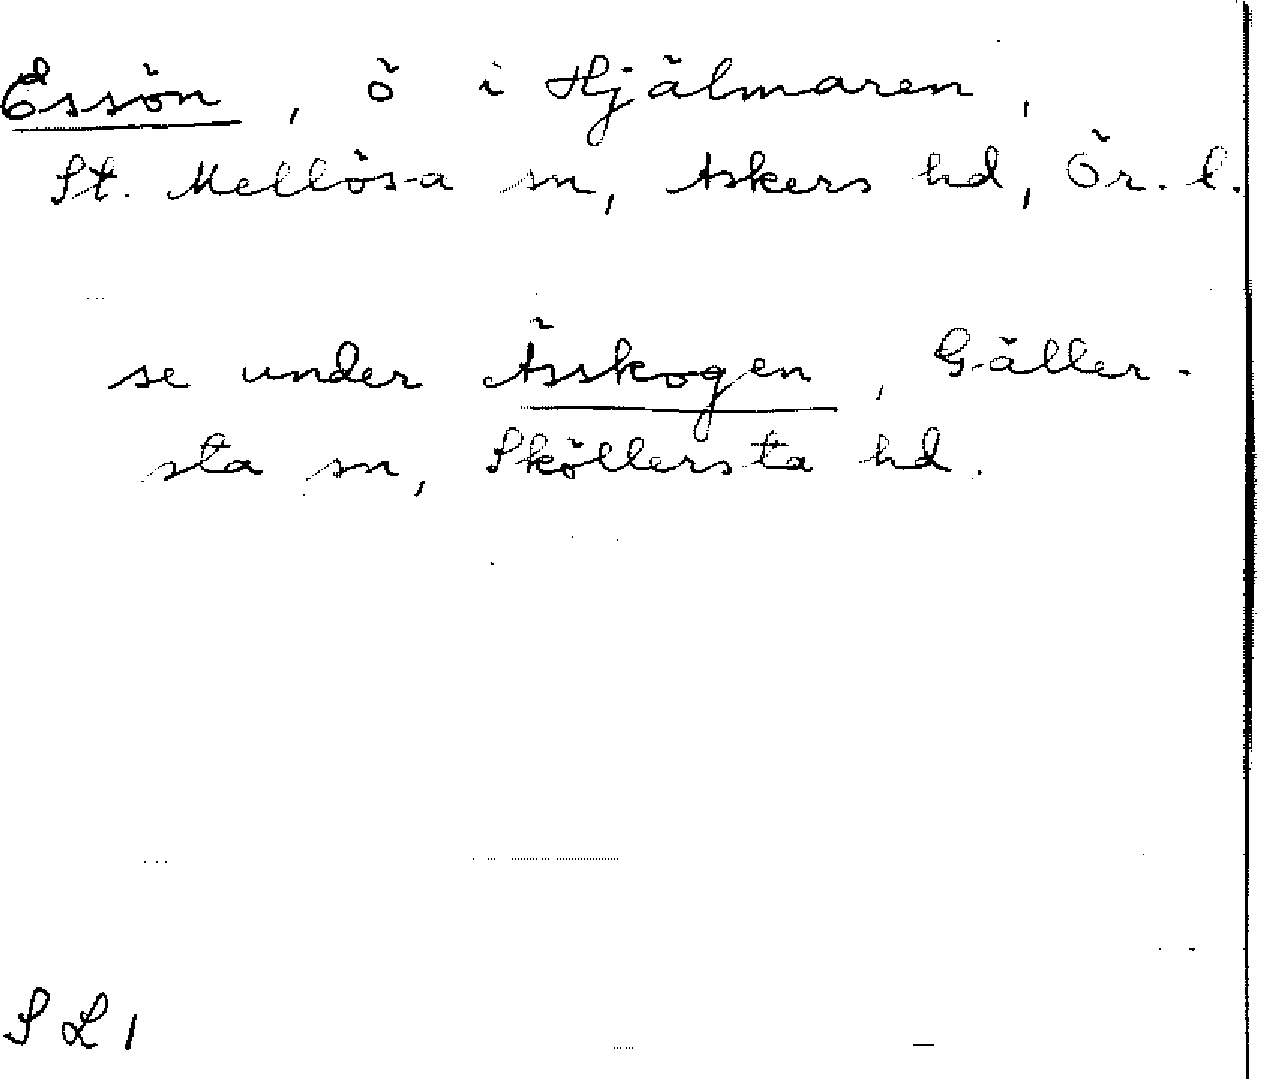 Essön, ö i Hjälmaren,
St. Mellösa sn, Askers hd, Ör. l.
se under Ässkogen, Gäller-
sta sn, Sköllersta hd.
S L 1